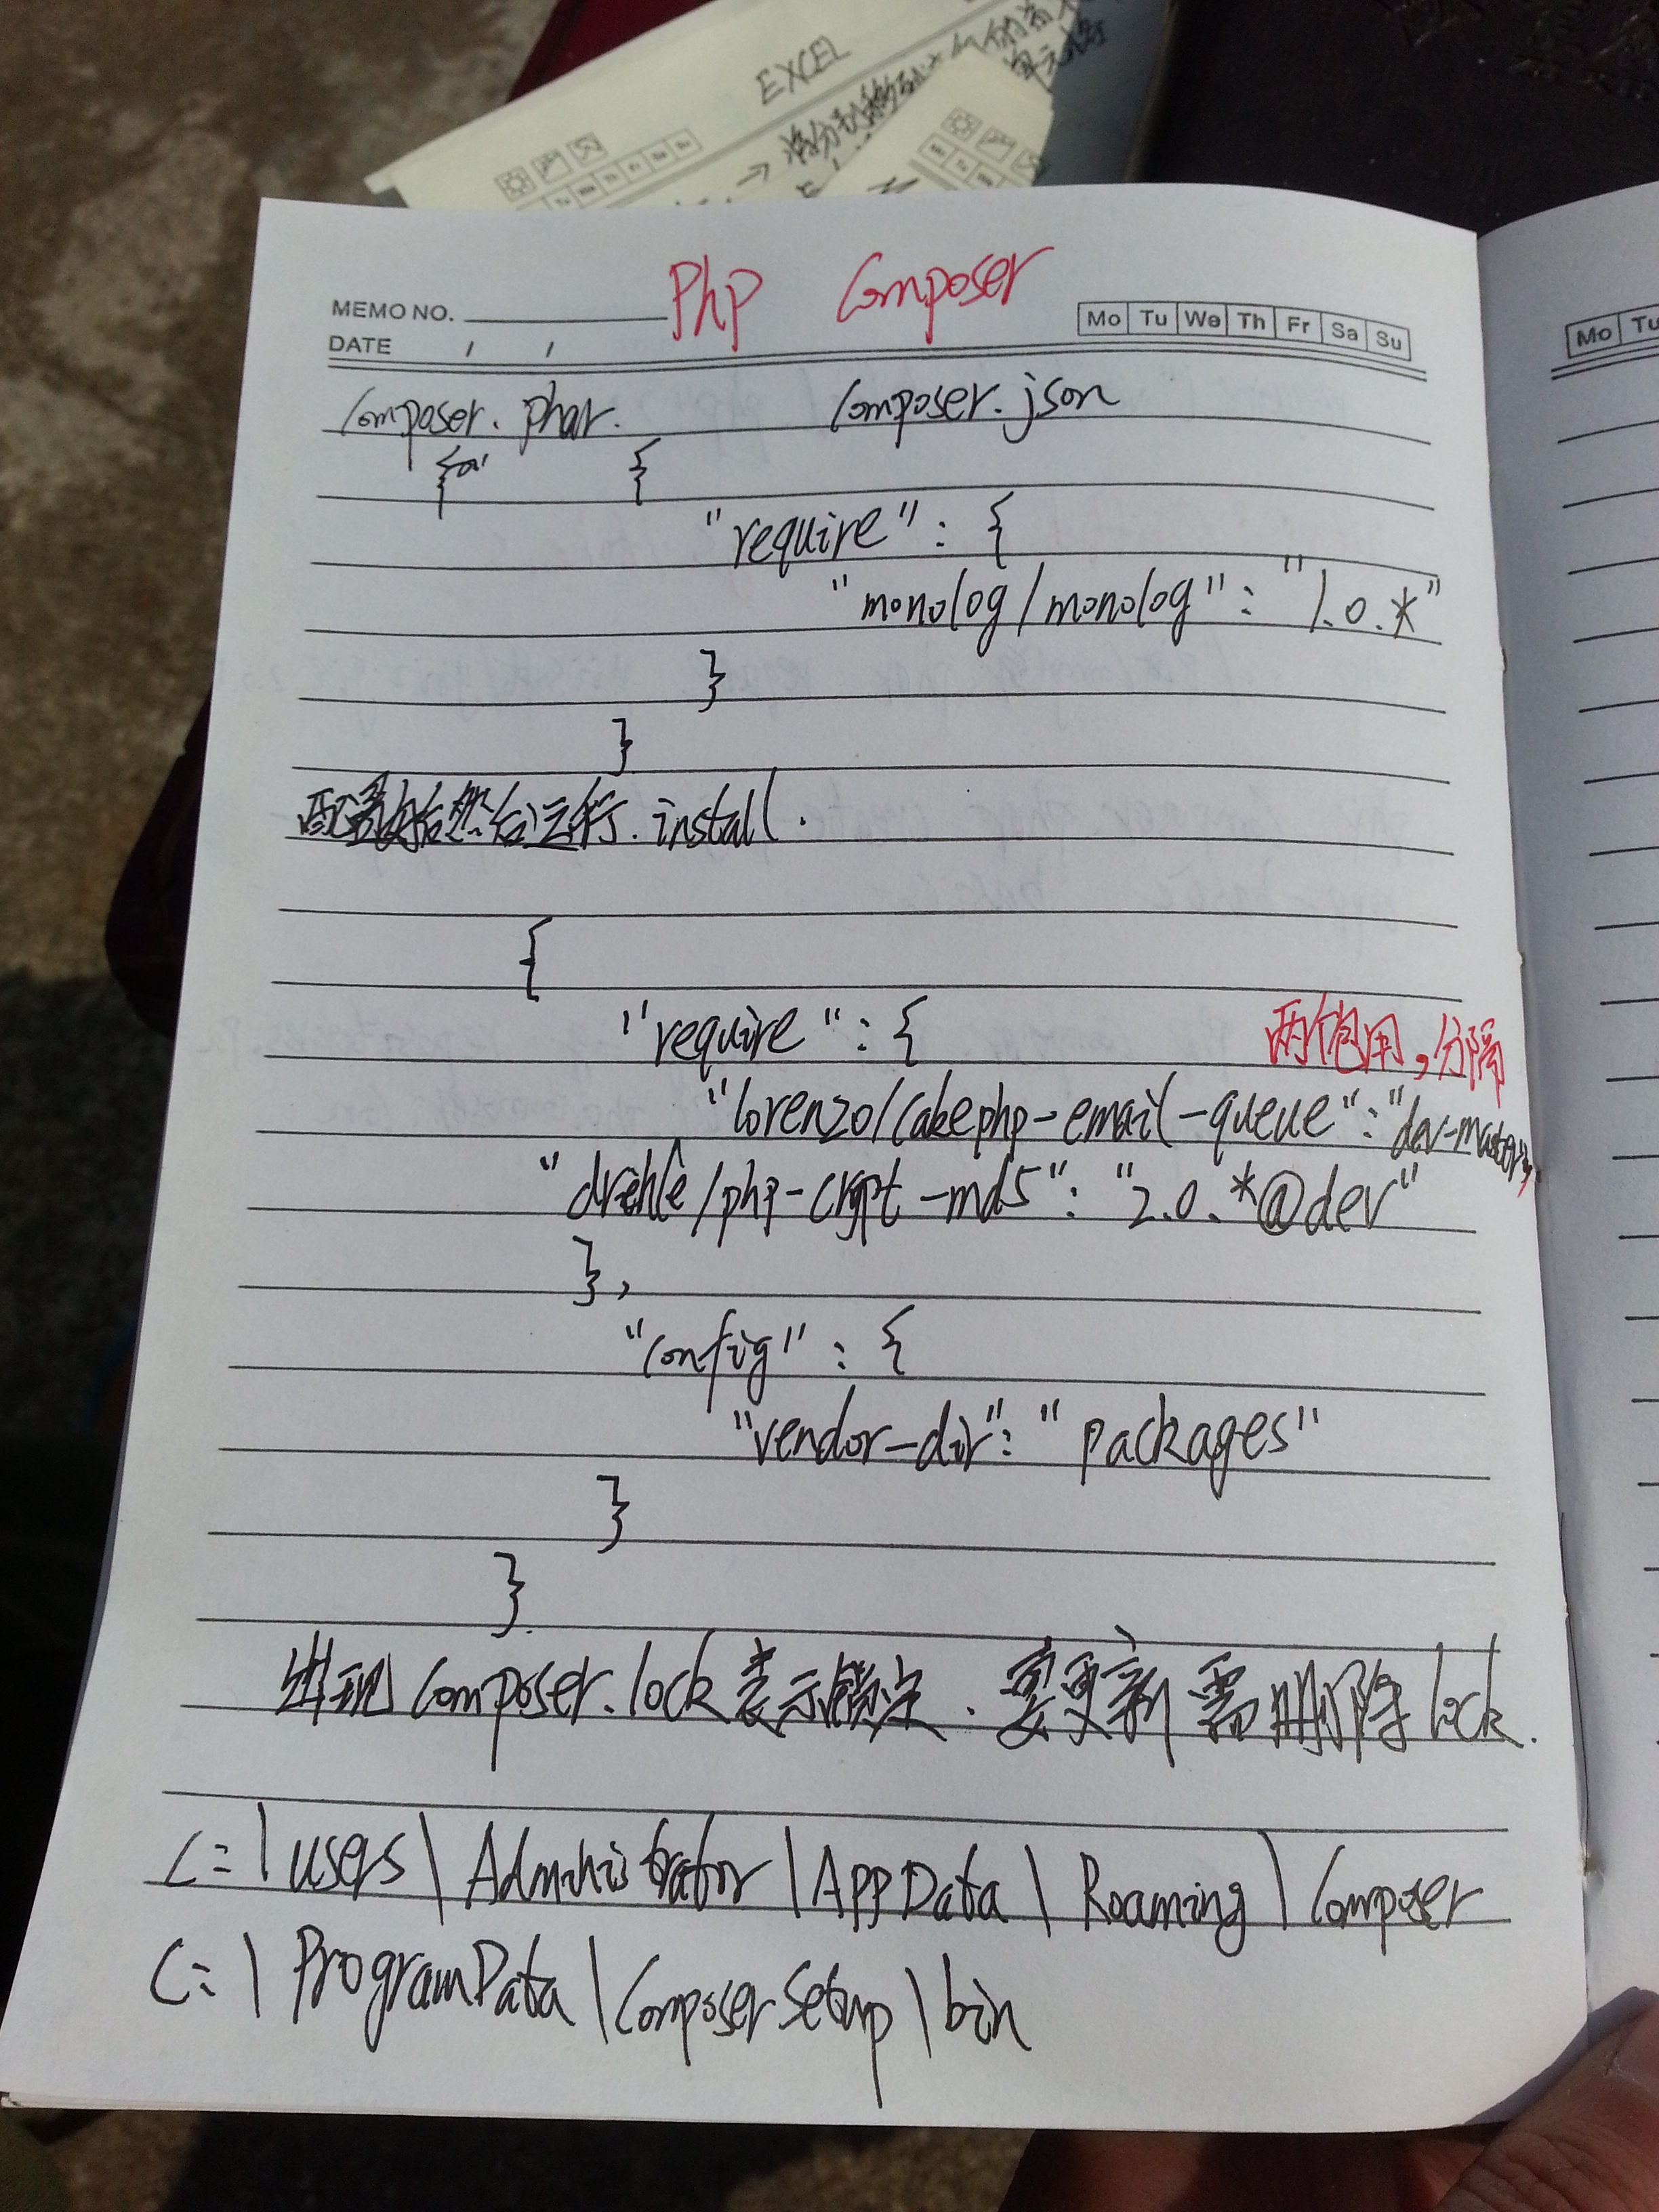 EXCEL
Php Composer
MEMO NO.
Mo Tu We Th Fr Sa Su
DATE / /
Mo Tu
Composer.phar. Composer.json
{
"require": {
"monolog/monolog": "1.0.*"
}
}
然后运行.install.
{
"require": {
两个包用,分隔
"lorenzo/cakephp-email-queue": "dev-master",
"drehle/php-crypt-md5": "2.0.*@dev"
},
"config": {
"vendor-dir": "packages"
}
}.
出现Composer.lock表示锁定.要更新需删除lock.
C:\users\Administrator\AppData\Roaming\Composer
C:\ProgramData\ComposerSetup\bin